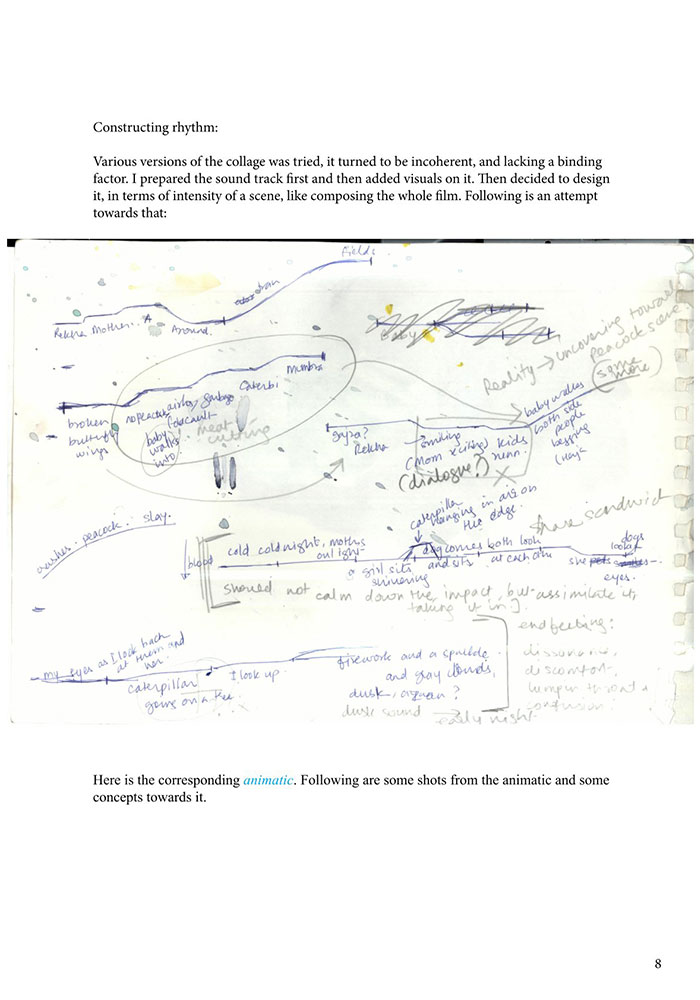 Constructing rhythm:
Various versions of the collage was tried, it turned to be incoherent, and lacking a binding
factor. I prepared the sound track first and then added visuals on it. Then decided to design
it, in terms of intensity of a scene, like composing the whole film. Following is an attempt
towards that:
Fields
Rekha Mother
Around
Reality → uncovering towards
Peacock scene
(same
more)
Caterbi
Mumbra
garbage
broken
butterfly
wings
baby
walks
into
meat
cutting
Rekha
smiling
(Mom
kids
(dialogue?)
baby walks
both side
people
begging
peacock. slay.
caterpillar
hanging in air on
the edge.
share sandwich
blood
cold cold night, moths
on light
a girl sits
shivering
dog comes
and sits
both look
at each other
she
dogs
eyes.
should not calm down the impact, but assimilate it,
taking it in]
end feeling:
dissonance,
discomfort,
lump in throat &
confusion
my eyes as I look back
at them and
her.
caterpillar
going on a tree
I look up.
firework and a sparkle
and gray clouds,
dusk,
dusk sound → early night.
Here is the corresponding animatic. Following are some shots from the animatic and some
concepts towards it.
8